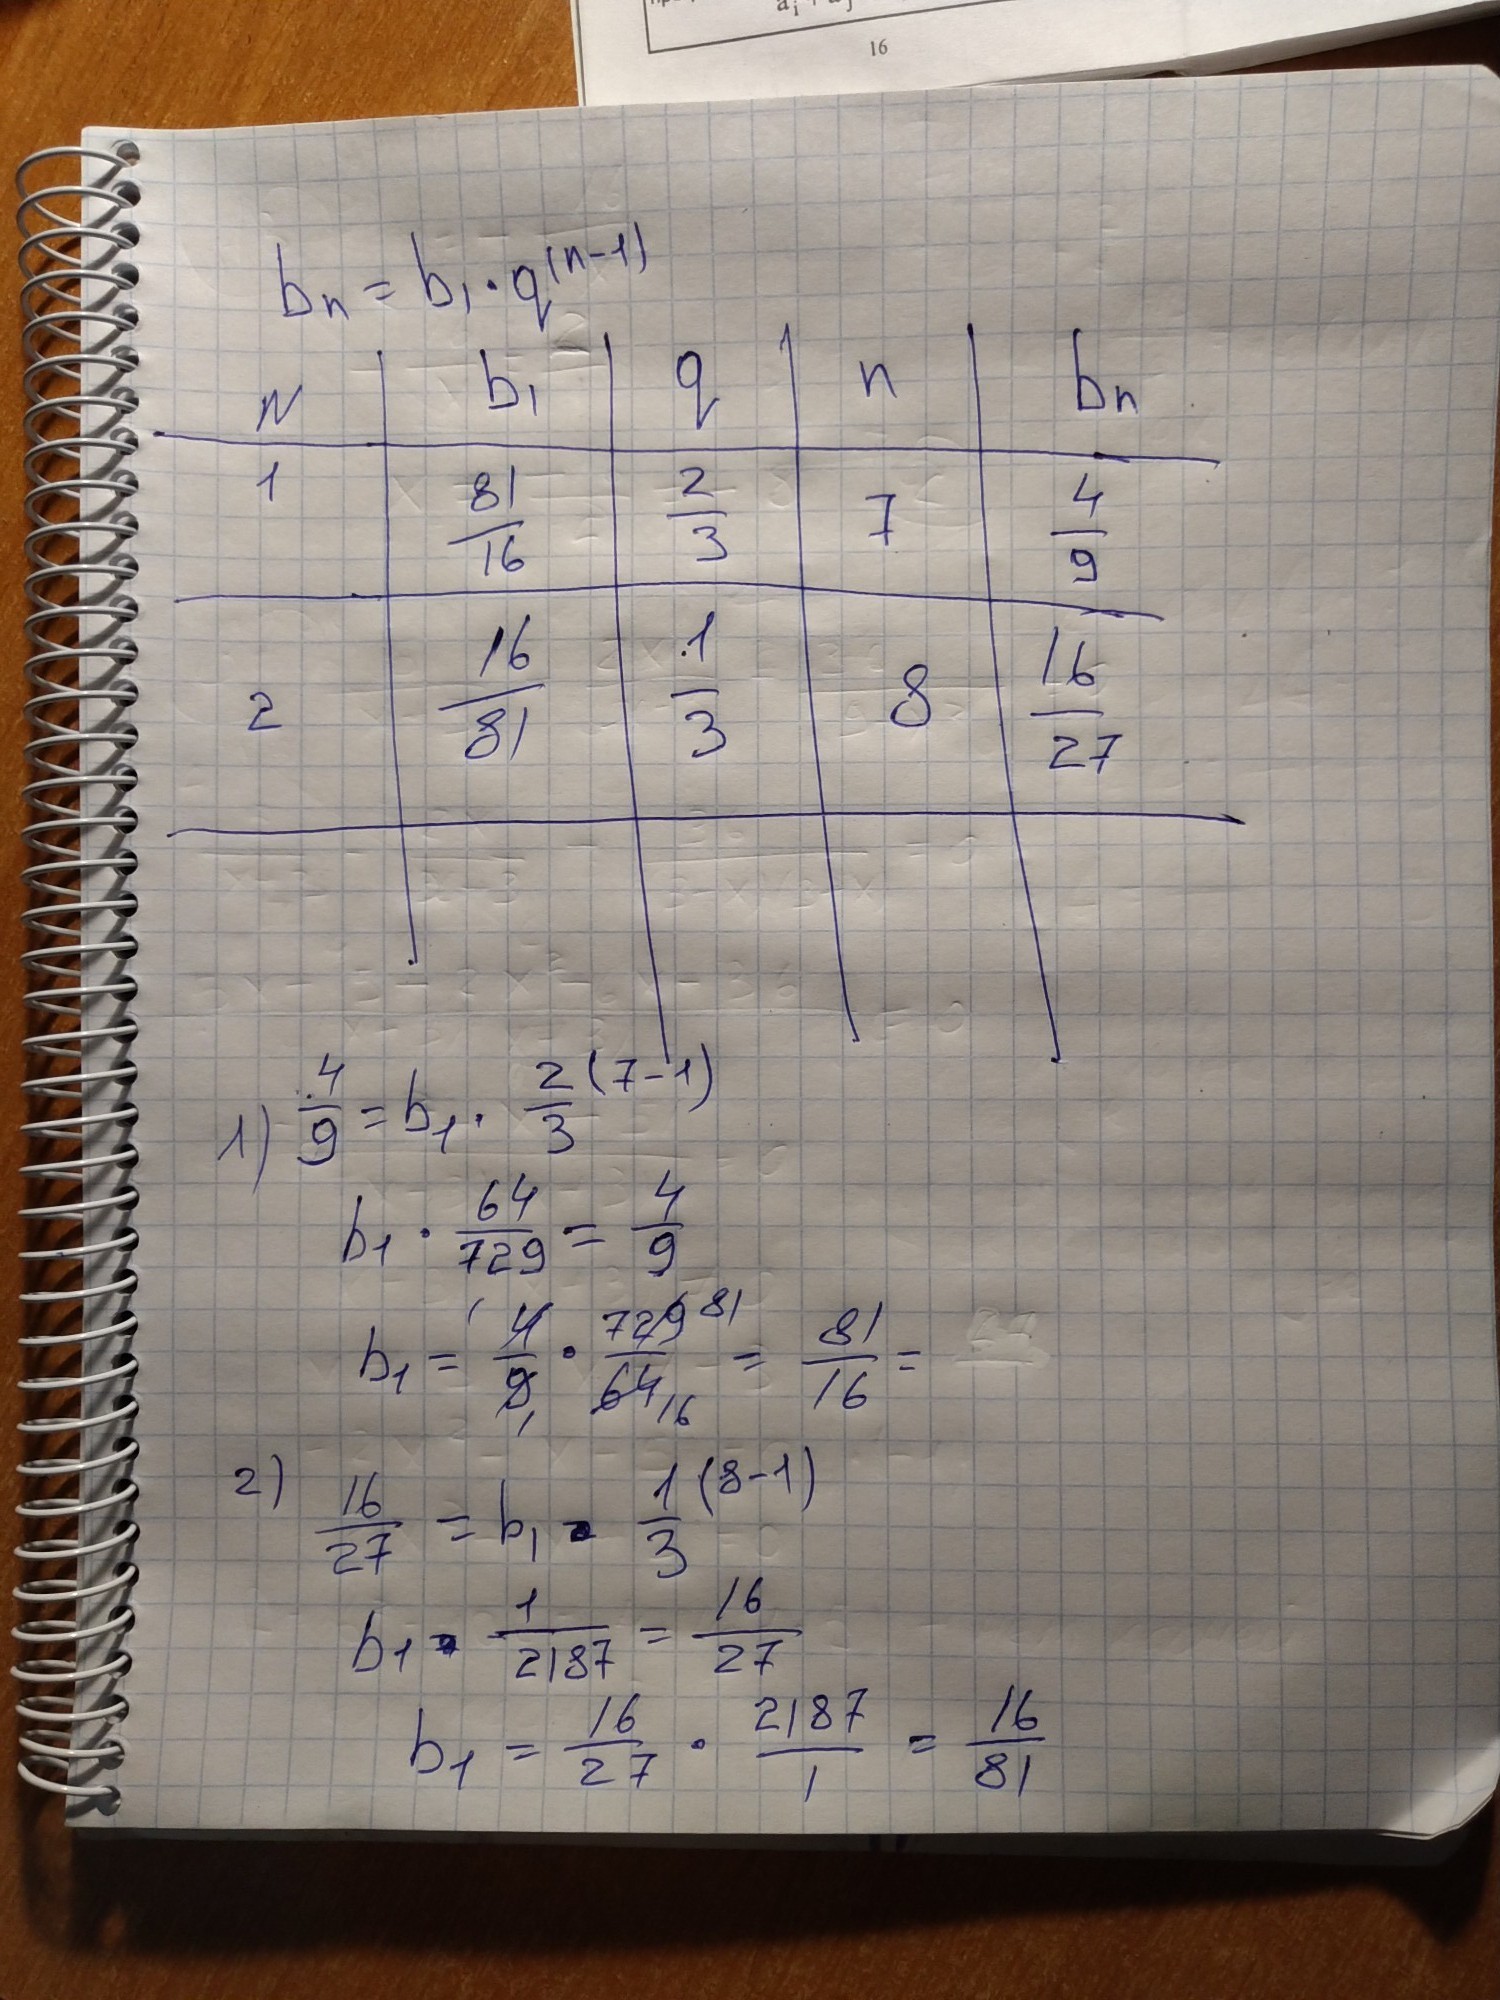 16
bn = b1 · q^(n-1)
N | b1 | q | n | bn
1 | 81/16 | 2/3 | 7 | 4/9
2 | 16/81 | 1/3 | 8 | 16/27
1) 4/9 = b1 · 2/3 (7-1)
b1 · 64/729 = 4/9
b1 = 4/9 · 729/64 = 81/16 =
2) 16/27 = b1 · 1/3 (8-1)
b1 · 1/2187 = 16/27
b1 = 16/27 · 2187/1 = 16/81